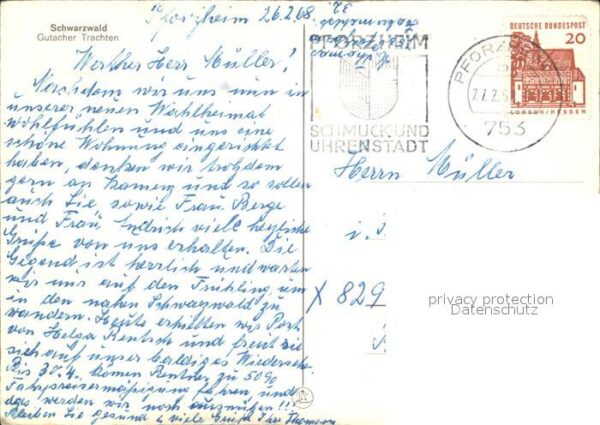 Schwarzwald
Gutacher Trachten
Pforzheim 26.2.68.
Werther Herr Müller!
Nachdem wir uns nun in
unserer neuen Wahlheimat
wohlfühlen und uns eine
schöne Wohnung eingerichtet
haben, denken wir trotzdem
gern an Kamenz und so sollen
auch Sie sowie Frau Berge
und Frau Endrich viele herzliche
Grüße von uns erhalten. Die
Gegend ist herrlich und warten
wir nur auf den Frühling, um
in den nahen Schwarzwald zu
wandern. Heute erhielten wir Post
von Helga Rentsch und freut sie
sich auf unser baldiges Wiedersehn.
Bis 30.4. können Rentner zu 50%
Fahrpreisermäßigung fahren, und
das werden wir noch ausnützen!!!
Bleiben Sie gesund & viele Grüße Ihre
PFORZHEIM
SCHMUCK UND
UHRENSTADT
PFORZHEIM
27.2.
753
DEUTSCHE BUNDESPOST
20
LORSCH/HESSEN
Herrn Müller
i.
X 829
privacy protection
Datenschutz